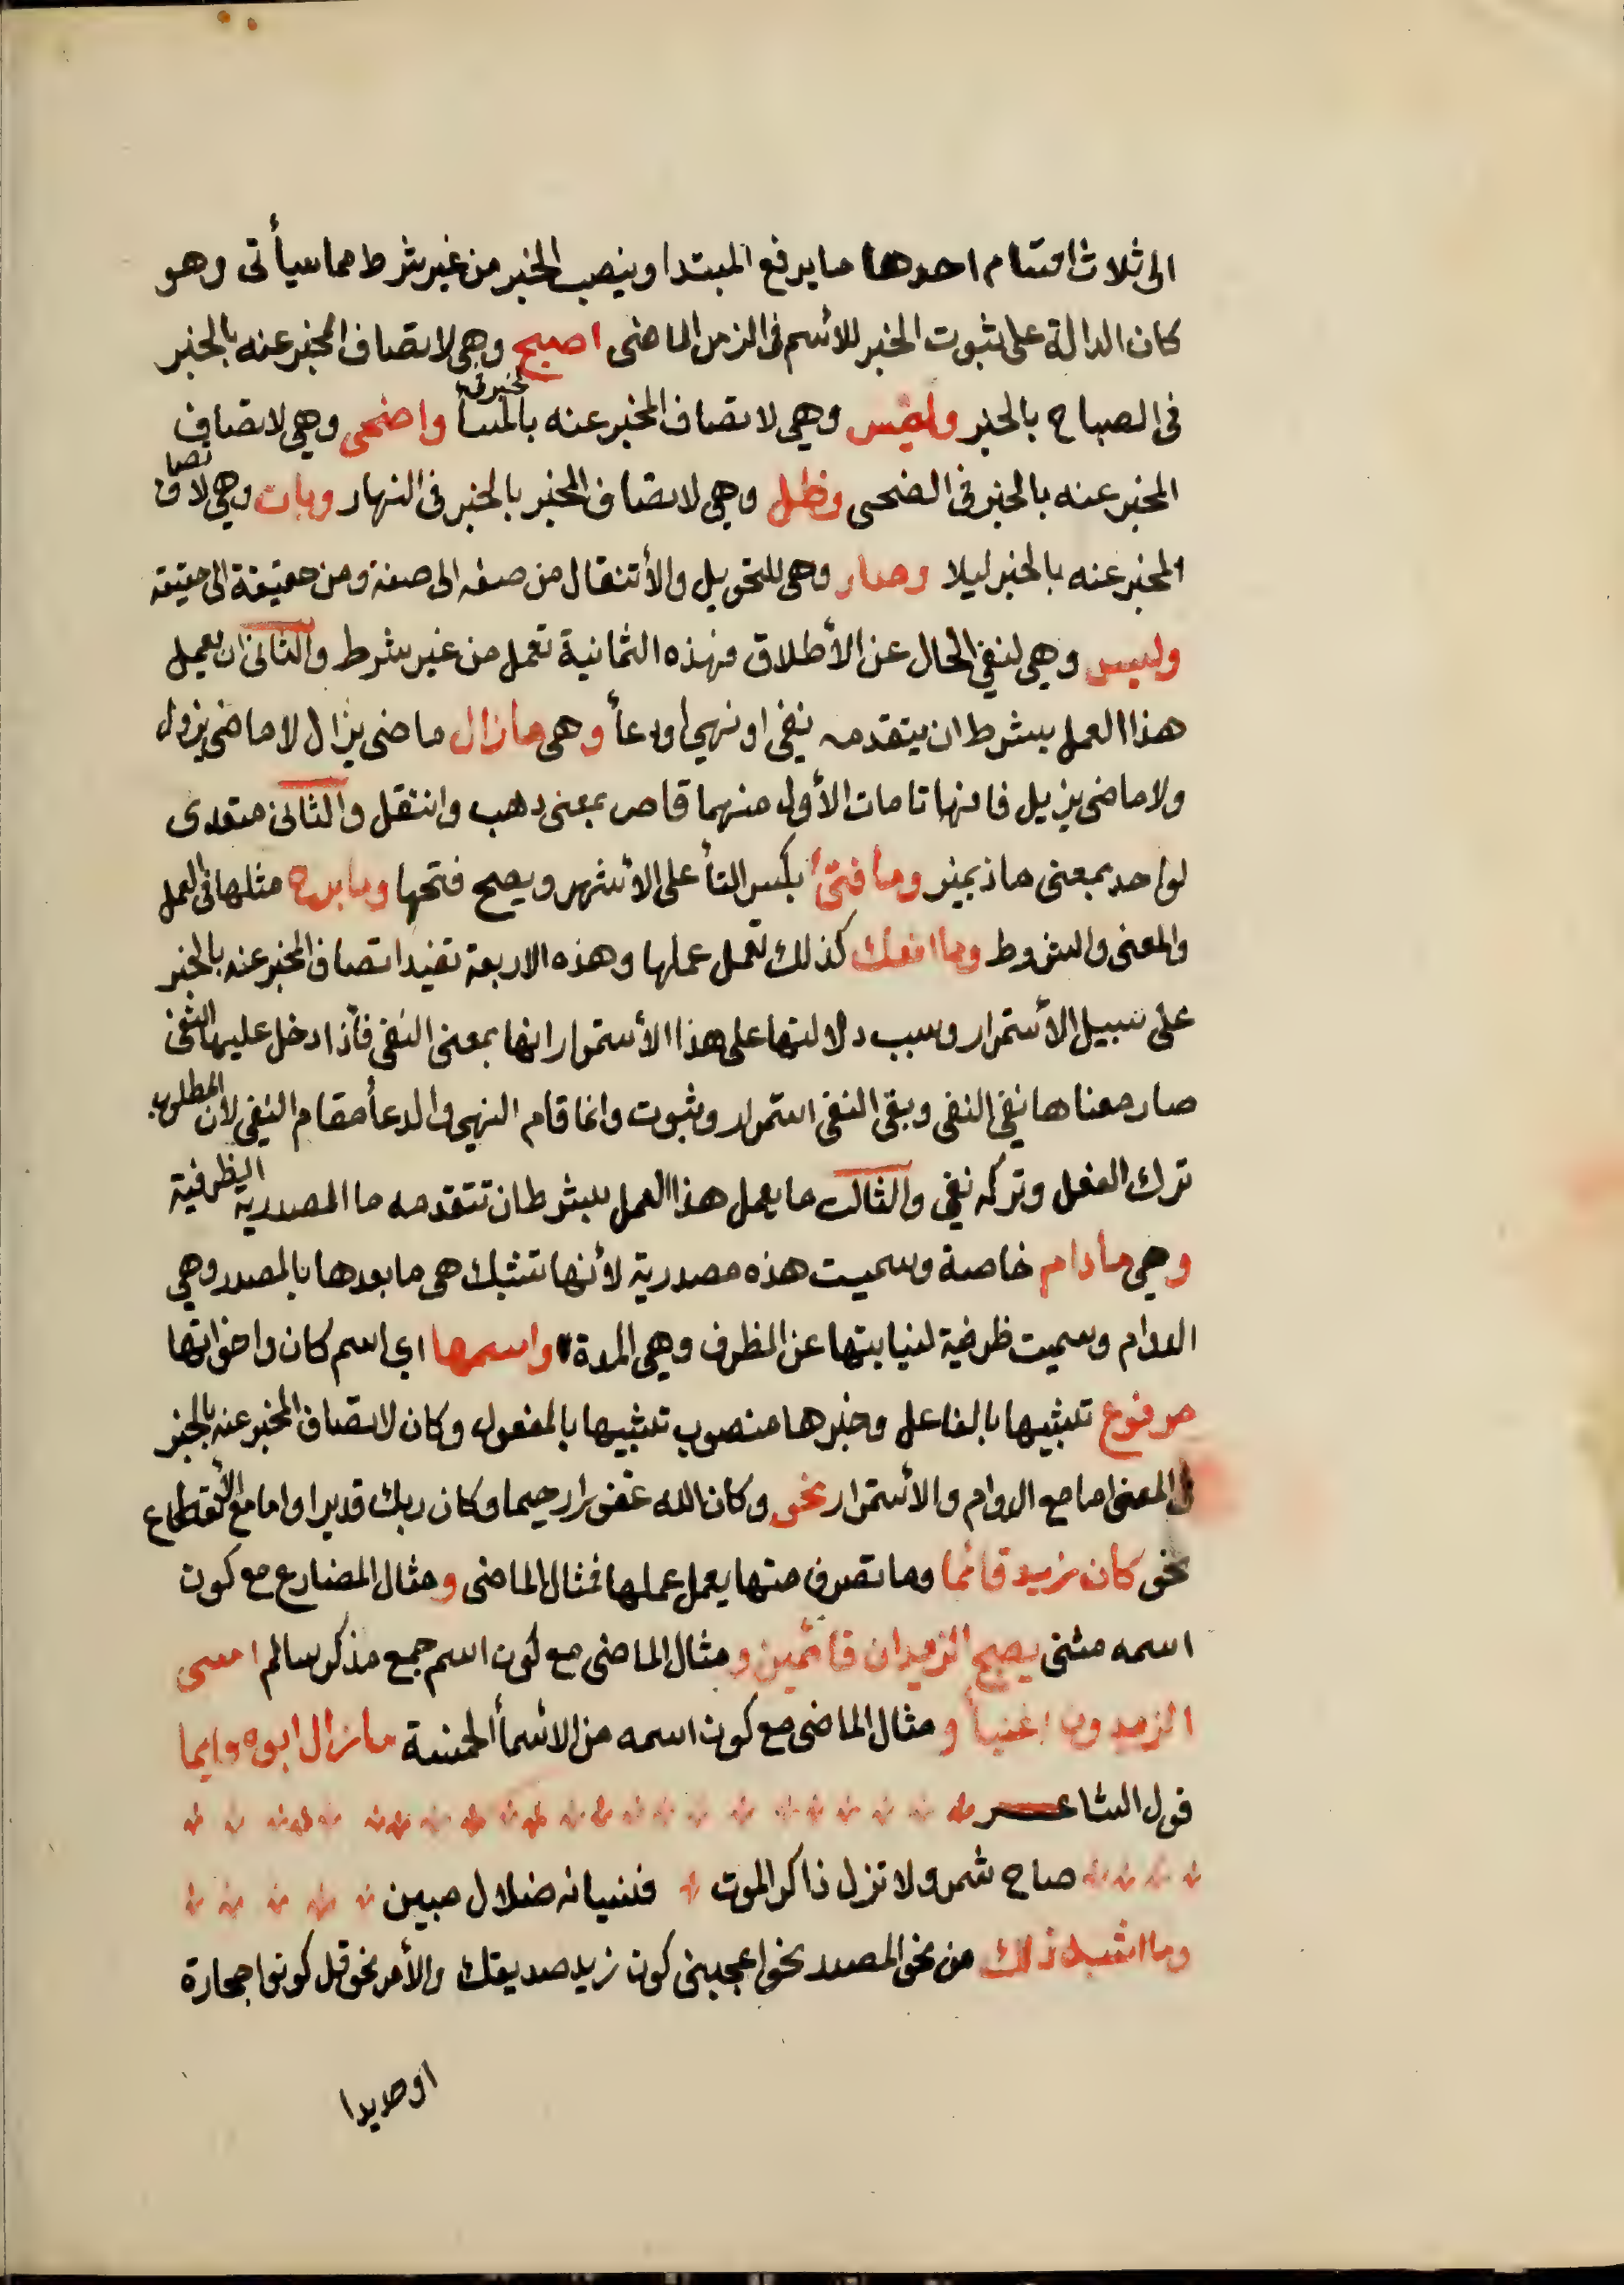 الى ثلاث اقسام احدها ما يرفع المبتدا وينصب الخبر من غير شرط مما سيأتى وهو
كان الدالة على ثبوت الخبر للأسم فى الزمن الماضى اصبح وهى لاتصاف المخبر عنه بالخبر
فى الصباح بالخبر وامسى وهى لاتصاف المخبر عنه بالخبر فى المسأ واضحى وهى لاتصاف
المخبر عنه بالخبر فى الضحى وظل وهى لاتصاف المخبر بالخبر فى النهار وبات وهى لاتصاف
المخبر عنه بالخبر ليلا وصار وهى للتحويل والأنتقال من صفه الى صفة ومن حقيقة الى حقيقة
وليس وهى لنفى الحال عن الأطلاق فهذه الثمانية تعمل من غير شرط والثانى ان يعمل
هذا العمل بشرط ان يتقدمه نفى او نهى او دعأ وهى ما زال ماضى يزال لا ماضى يزول
ولا ماضى يزيل فانها تامات الأول منهما قاصر بمعنى ذهب وانتقل والثانى متعدى
لواحد بمعنى ماز يميز وما فتئ بكسر التأ على الأشهر ويصح فتحها وما برح مثلها فى العمل
والمعنى والشروط وما انفك كذلك تعمل عملها وهذه الاربعة تفيد اتصاف المخبر عنه بالخبر
على سبيل الأستمرار وسبب دلالتها على هذا الأستمرار انها بمعنى النفى فأذا دخل عليها النفى
صار معناها نفى النفى وبقى النفى استمرار وثبوت وانما قام النهى والدعأ مقام النفى لان المطلوب
ترك الفعل وتركه نفى والثالث ما يعمل هذا العمل بشرط ان تتقدمه ما المصدرية الظرفية
وهى ما دام خاصة وسميت هذه مصدرية لأنها تنسبك هى ما بعدها بالمصدر وهى
الدوام وسميت ظرفية لنيابتها عن الظرف وهى المدة واسمها اي اسم كان واخواتها
مرفوع تشبيها بالفاعل وخبرها منصوب تشبيها بالمفعول وكان لاتصاف المخبر عنه بالخبر
المعنى اما مع الدوام والأستمرار نحو وكان الله غفورا رحيما وكان ربك قديرا واما مع الأنقطاع
نحو كان زيد قائما وما تصرف منها يعمل عملها فمثال الماضى ومثال المضارع مع كون
اسمه مثنى يصبح الزيدان قائمين ومثال الماضى مع كون اسم جمع مذكر سالم امسى
الزيدون اغنيأ ومثال الماضى مع كون اسمه من الاسمأ الخمسة ما زال ابوه وايما
قول الشاعر
صاح شمر ولا تزل ذاكر الموت فنسيانه ضلال مبين
وما اشبه ذلك من نحو المصدر نحو اعجبنى كون زيد صديقك والأمر نحو قل كونوا حجارة
او حديدا